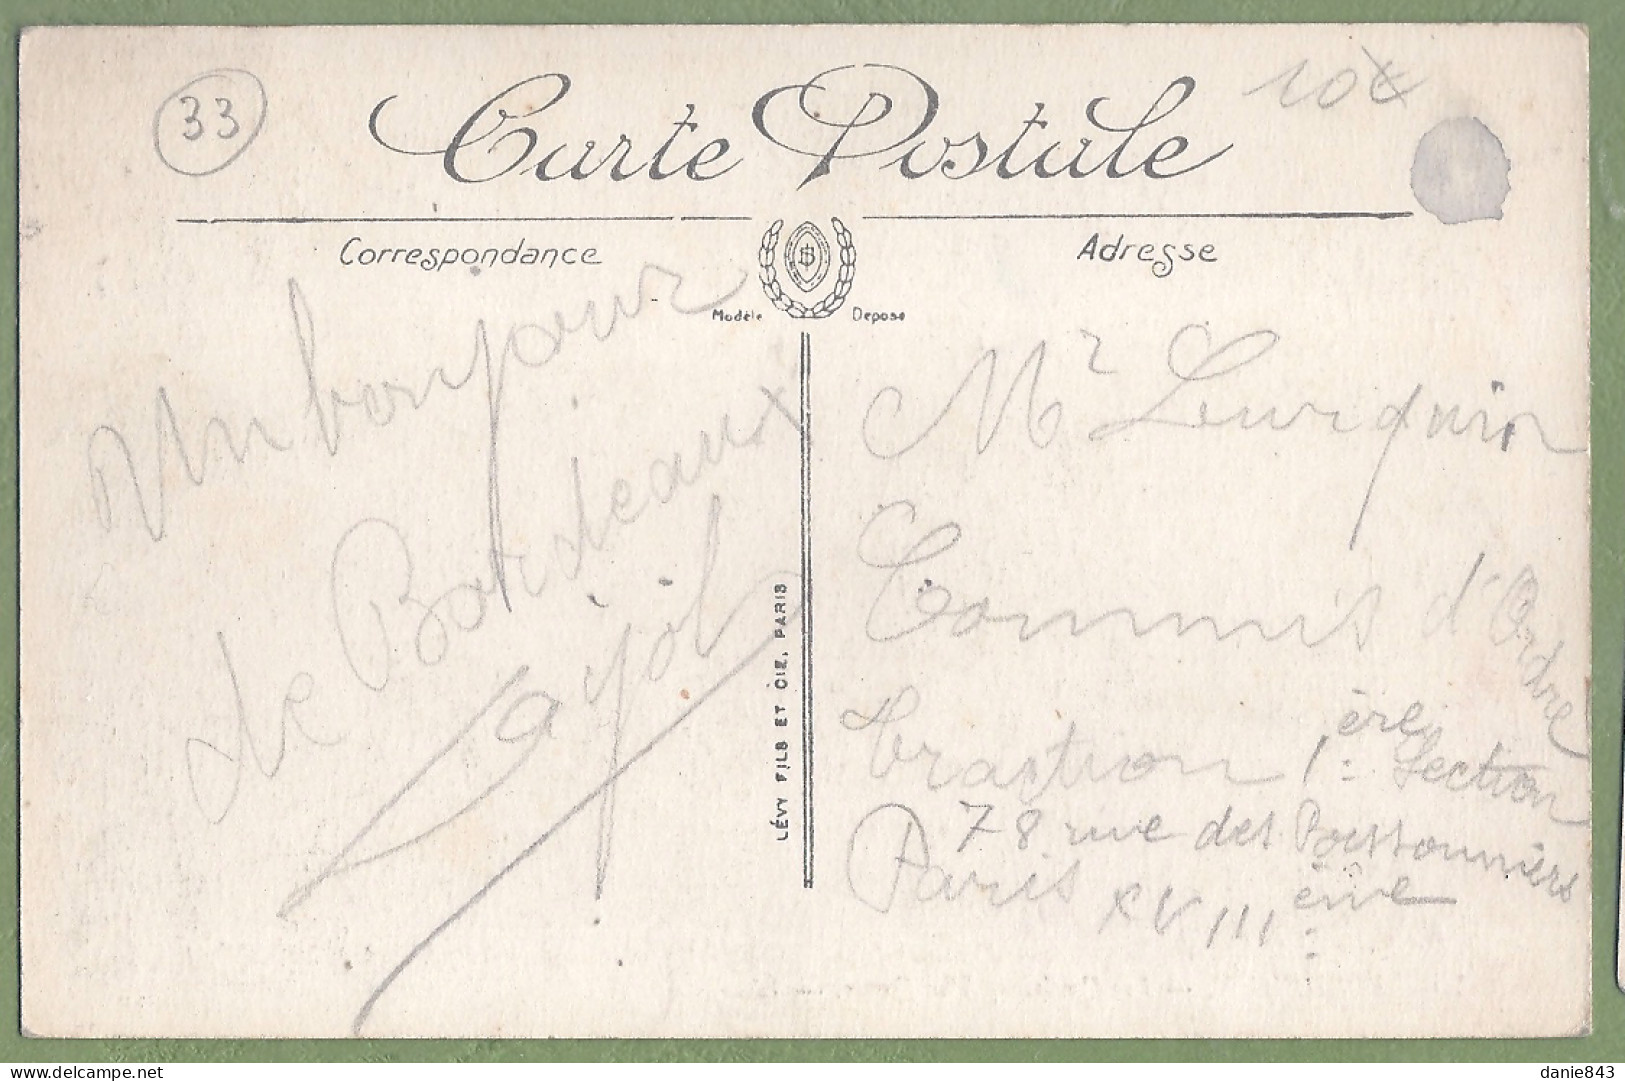 33
10€
Carte Postale
Correspondance
Adresse
Modèle Déposé
Un bonjour
de Bordeaux
LÉVY FILS ET CIE, PARIS
Mr Leurquin
Commis d'Ordre
traction 1ère Section
78 rue des Poissonniers
Paris XVIII ème
danie843